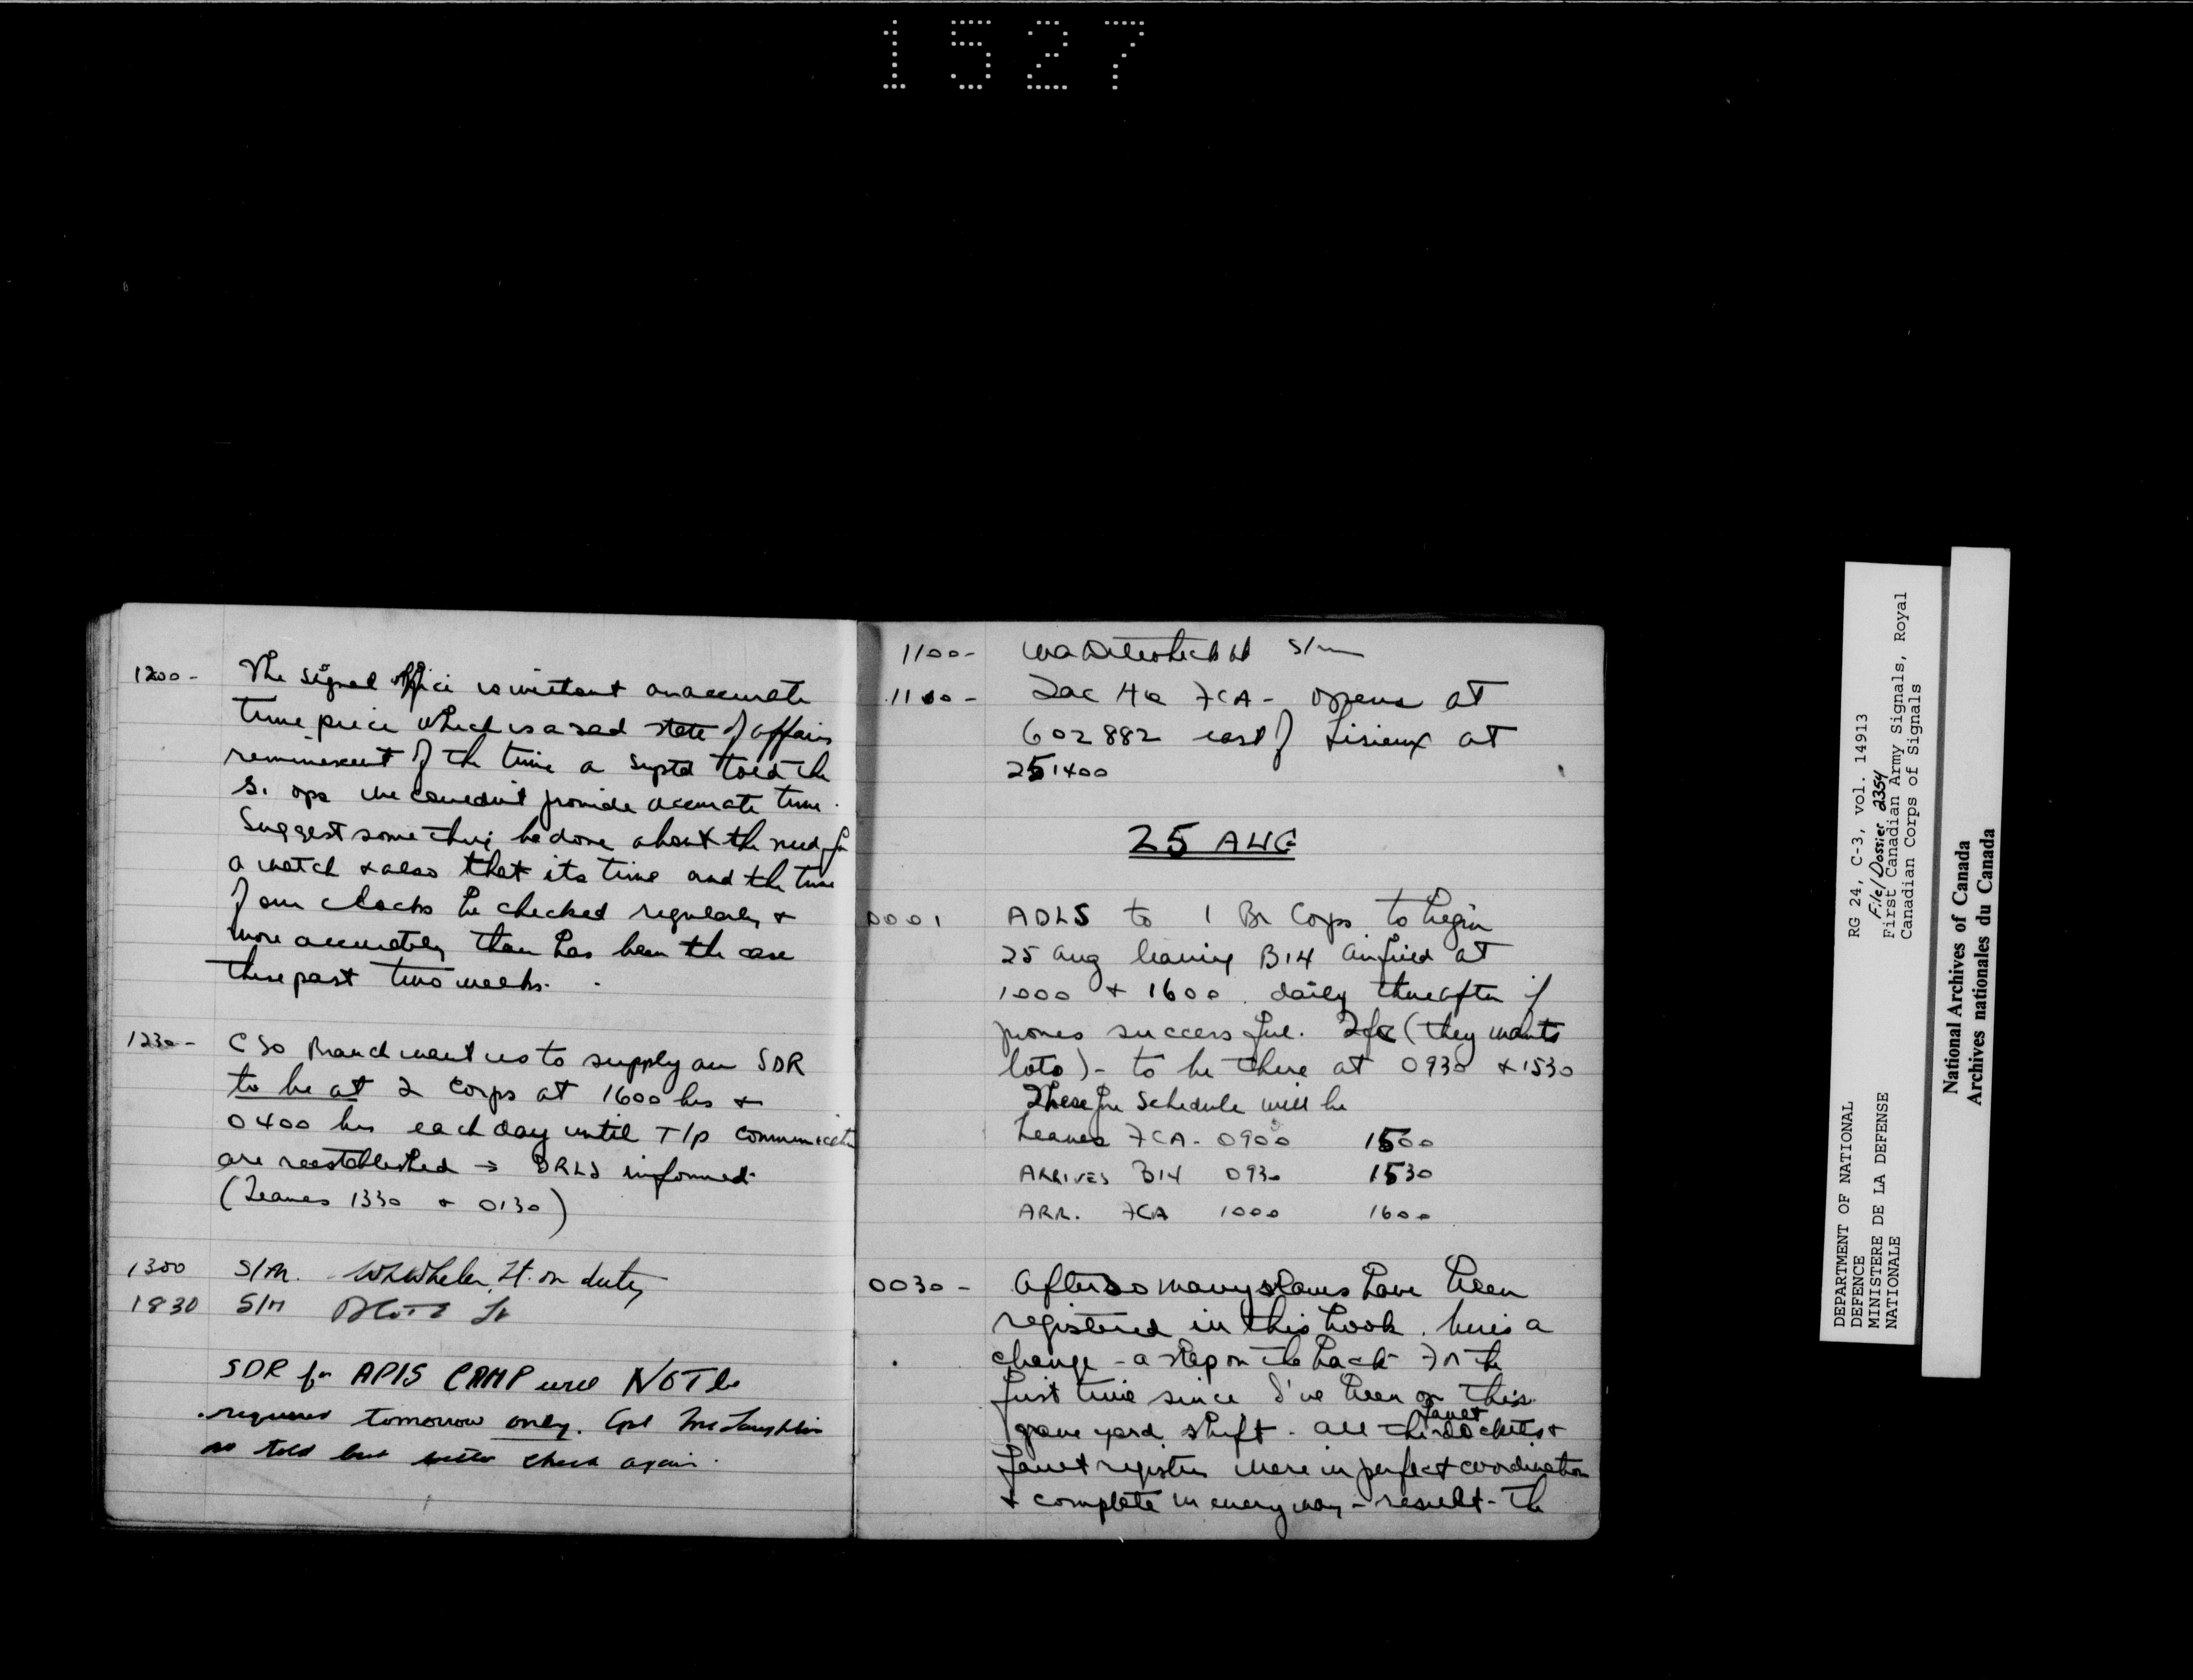 1527
1200- The signal office is without an accurate
time piece which is a sad state of affairs
reminiscent of the time a Suptd told the
S. ops we couldn't provide accurate time.
Suggest something be done about the need for
a watch & also that its time and the time
of our clocks be checked regularly &
more accurately than has been the case
these past two weeks.
1230- CSO Branch want us to supply an SDR
to be at 2 Corps at 1600 hrs &
0400 hrs each day until T/p communication
are reestablished → DRLS informed.
(Leaves 1330 & 0130)
1300 S/M. Wheeler, Lt. on duty
1830 S/M Lt
SDR for APIS CAMP will NOT be
required tomorrow only. Cpl McLaughlin
so told but better check again.
1100- S/m
1100- Tac HQ FCA- opens at
602882 east of Lisieux at
251400
25 AUG
0001 ADLS to 1 Br Corps to begin
25 Aug leaving B14 airfield at
1000 & 1600. daily thereafter if
proves successful. (they wants
lots)- to be there at 0930 & 1530
Therefore Schedule will be
Leaves FCA- 0900 1500
ARRIVES B14 0930 1530
ARR. FCA 1000 1600
0030- After so many slams have been
registered in this book. here's a
change - a slap on the back. For the
first time since I've been on this
grave yard shift. all the Janet dockets &
Janet register were in perfect coordination
& complete in every way - result - The
DEPARTMENT OF NATIONAL
DEFENCE
MINISTERE DE LA DEFENSE
NATIONALE
RG 24, C-3, vol. 14913
File/Dossier 2354
First Canadian Army Signals, Royal
Canadian Corps of Signals
National Archives of Canada
Archives nationales du Canada